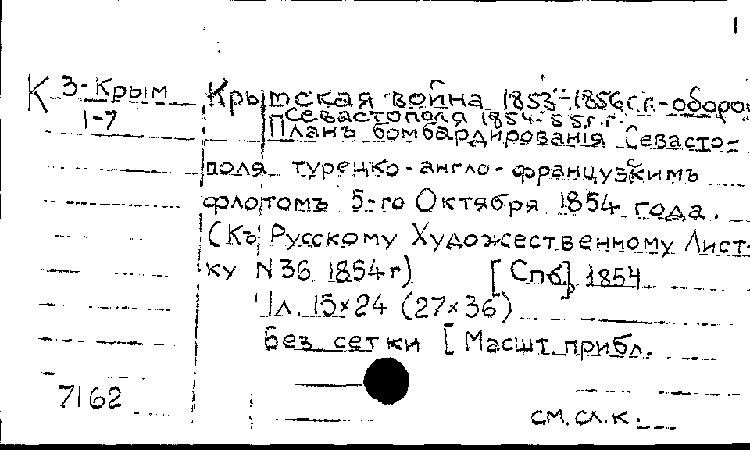 1
К 3-Крым
1-7
Крымская война 1853-1856 г.г.-оборо
Севастополя 1854-55 г.г.
Планъ бомбардированія Севасто=
поля турецко-англо-французскимъ
флотомъ 5-го Октября 1854 года.
(Къ Русскому Художественному Лист-
ку N 36 1854 г) [Спб], 1854
1 л. 15×24 (27×36)
Без сетки [Масшт. прибл.
7162
см. сл. к.